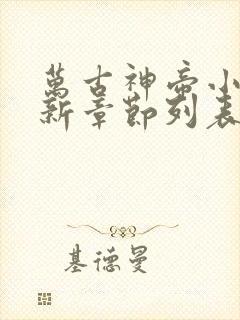 萬古神帝小
新章節列表
基德曼